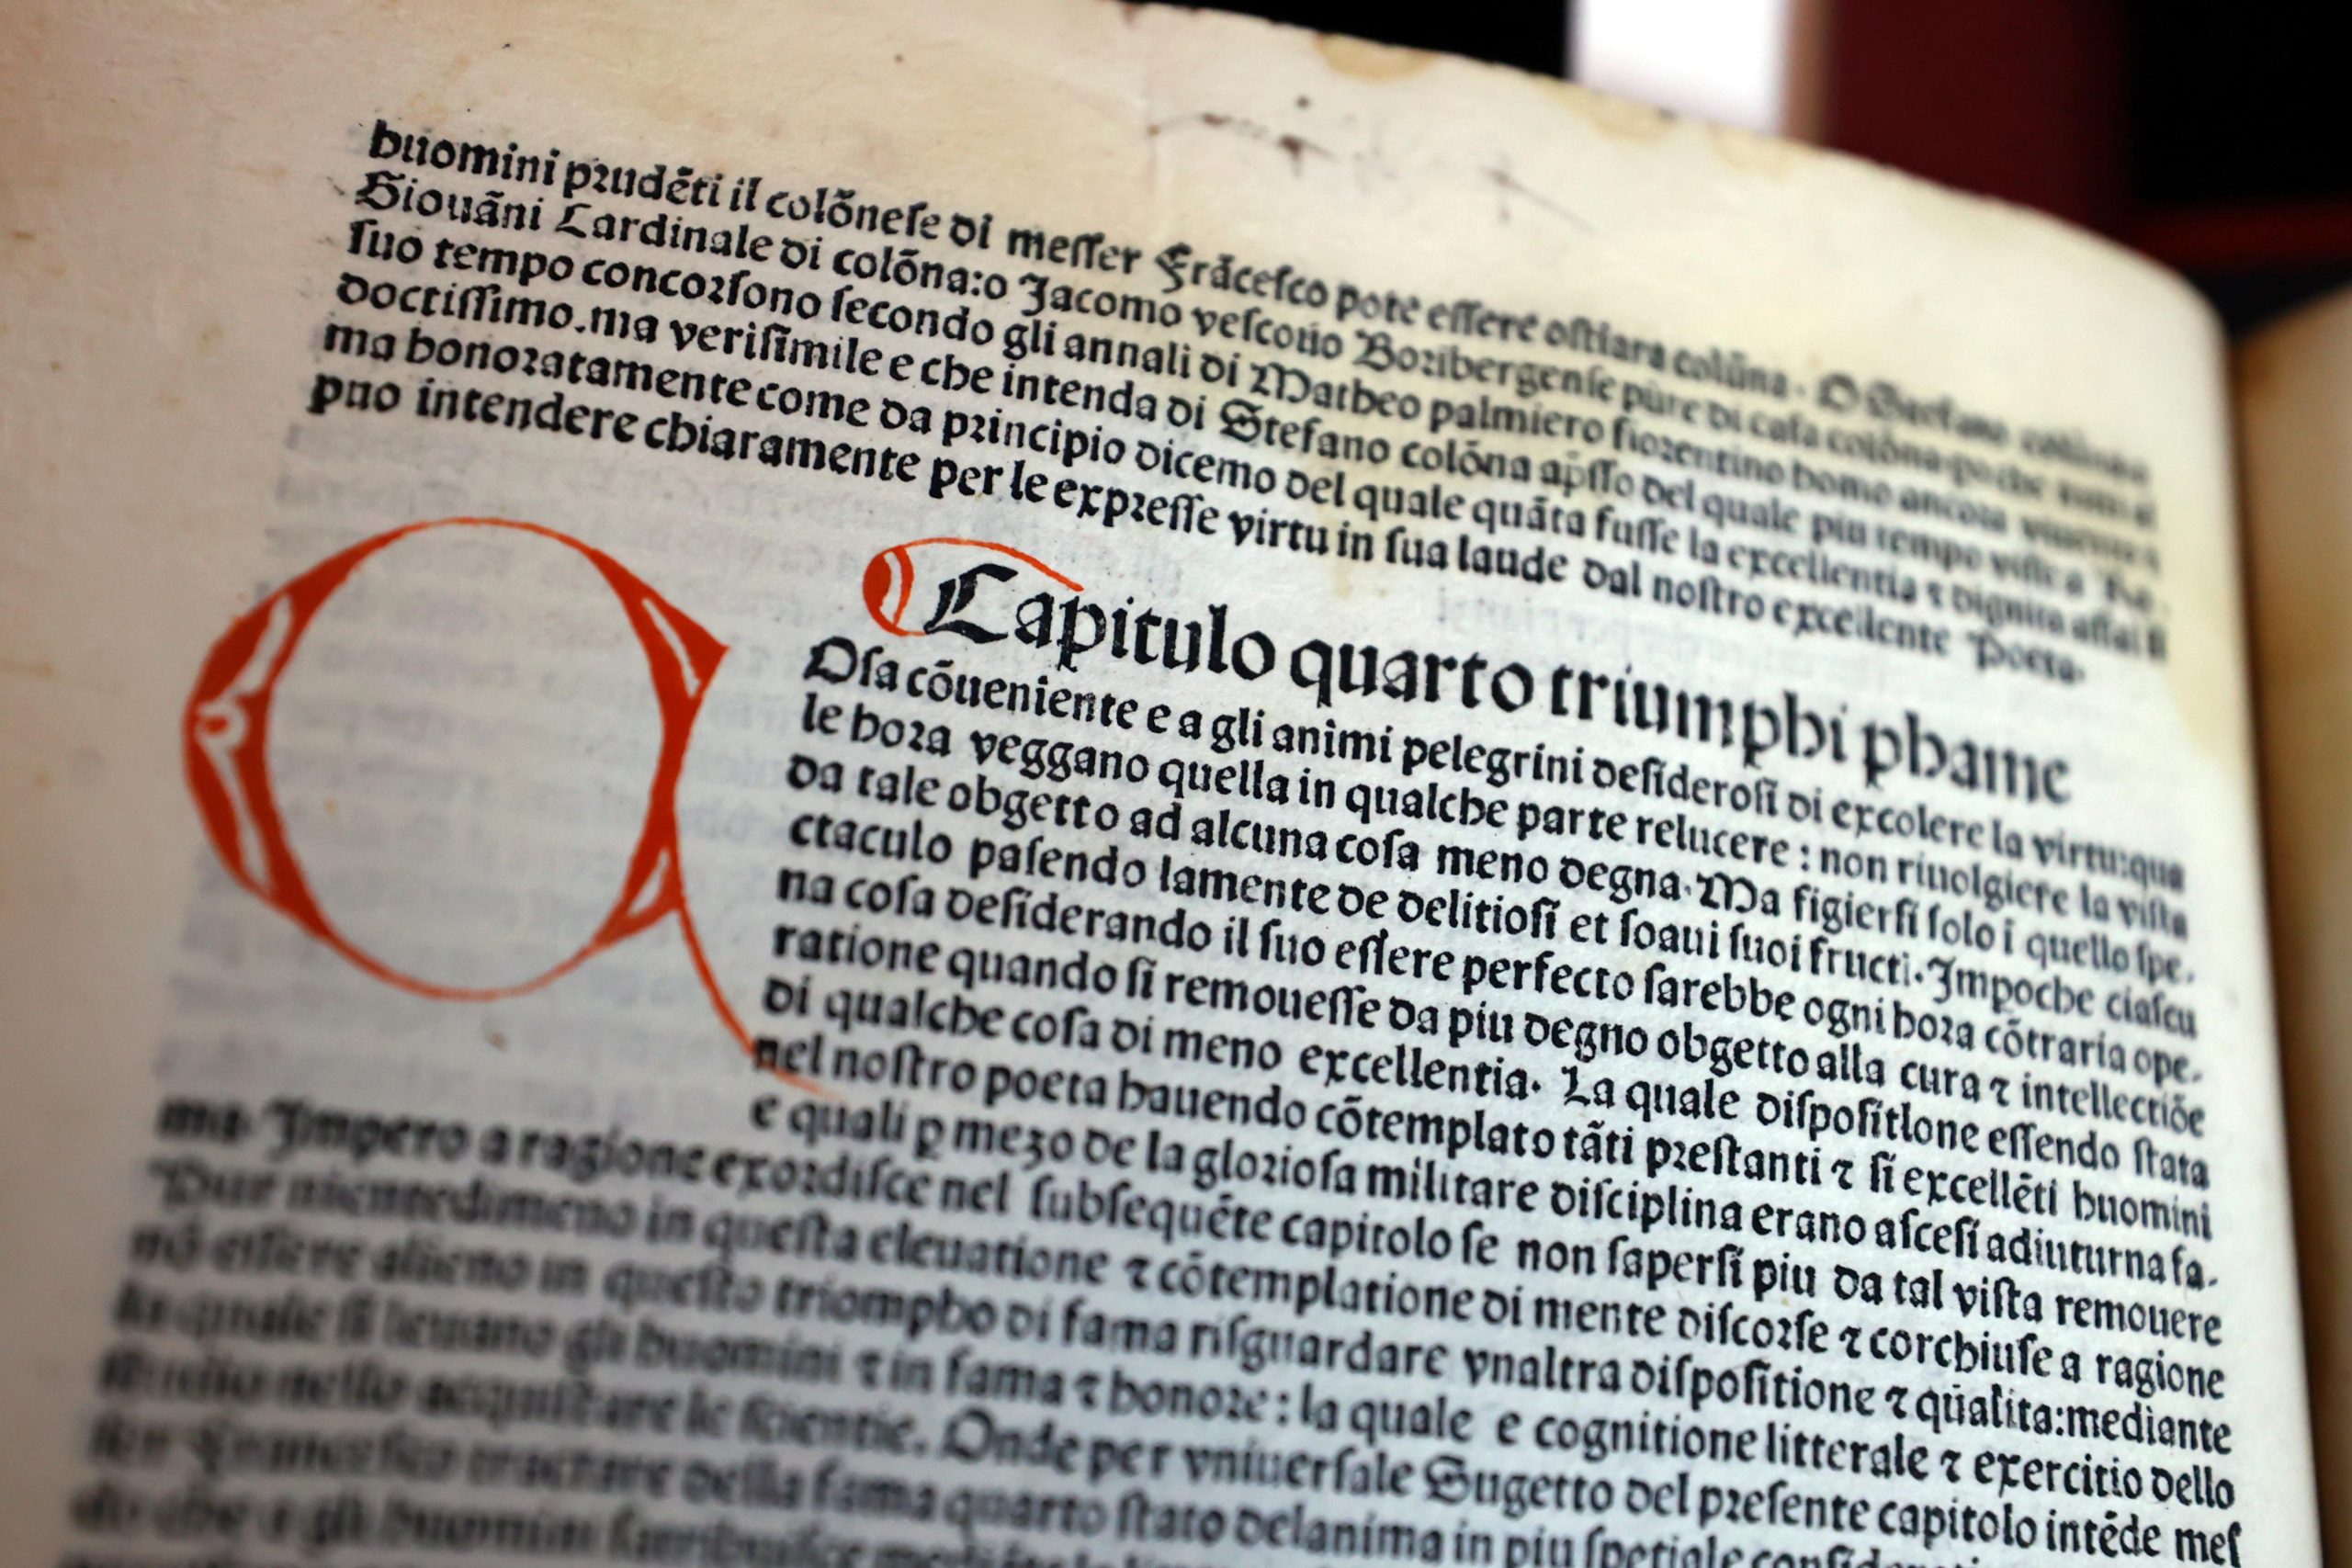 huomini prudēti il colōneſe di meſſer Frāceſco pote eſſere oſtiara colūna. O Stefano
Giouāni Cardinale di colōna:o Jacomo veſcouo Boribergenſe pure di caſa colōna
ſuo tempo concorſono ſecondo gli annali di Matheo palmiero fiorentino homo ancora
doctiſſimo.ma veriſimile e che intenda di Stefano colōna apſſo del quale piu tempo viſſe a
ma honoratamente come da principio dicemo del quale quāta fuſſe la excellentia ⁊ dignita aſſai ſi
puo intendere chiaramente per le expreſſe virtu in ſua laude dal noſtro excellente Poeta.
Capitulo quarto triumphi phame
Q
Oſa cōueniente e a gli animi pelegrini deſideroſi di excolere la virtu:qua
le hora veggano quella in qualche parte relucere : non riuolgiere la viſta
da tale obgetto ad alcuna coſa meno degna.Ma figierſi ſolo ī quello ſpe-
ctaculo paſendo lamente de delitioſi et ſoaui ſuoi fructi.Impoche ciaſcu
na coſa deſiderando il ſuo eſſere perfecto ſarebbe ogni hora cōtraria ope-
ratione quando ſi remoueſſe da piu degno obgetto alla cura ⁊ intellectiōe
di qualche coſa di meno excellentia. La quale diſpoſitIone eſſendo ſtata
nel noſtro poeta hauendo cōtemplato tāti preſtanti ⁊ ſi excellēti huomini
e quali ꝑ mezo de la glorioſa militare diſciplina erano aſceſi adiuturna fa-
ma. Impero a ragione exordiſce nel ſubſequēte capitolo ſe non ſaperſi piu da tal viſta remouere
Pur nientedimeno in queſta eleuatione ⁊ cōtemplatione di mente diſcorſe ⁊ corchiuſe a ragione
nō eſſere alieno in queſto triompho di fama riſguardare vnaltra diſpoſitione ⁊ qualita:mediante
la quale ſi leuano gli huomini ⁊ in fama ⁊ honore : la quale e cognitione litterale ⁊ exercitio dello
ſtudio nello acquiſtare le ſcientie. Onde per vniuerſale Sugetto del preſente capitolo intēde meſ
ſer Franceſco tractare della fama quarto ſtato delanima in piu ſpetiale
che a gli huomini